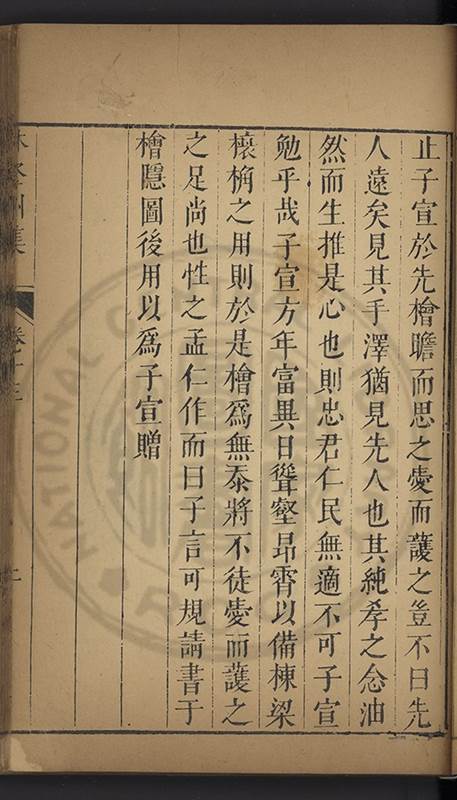 止子宣於先檜瞻而思之愛而䕶之豈不曰先
人遠矣見其手澤猶見先人也其純孝之念油
然而生推是心也則忠君仁民無適不可子宣
勉乎哉子宣方年富異日聳壑昂霄以備棟梁
榱桷之用則於是檜為無忝將不徒愛而䕶之
之足尚也性之孟仁作而曰子言可規請書于
檜隱圖後用以爲子宣贈
卷十三